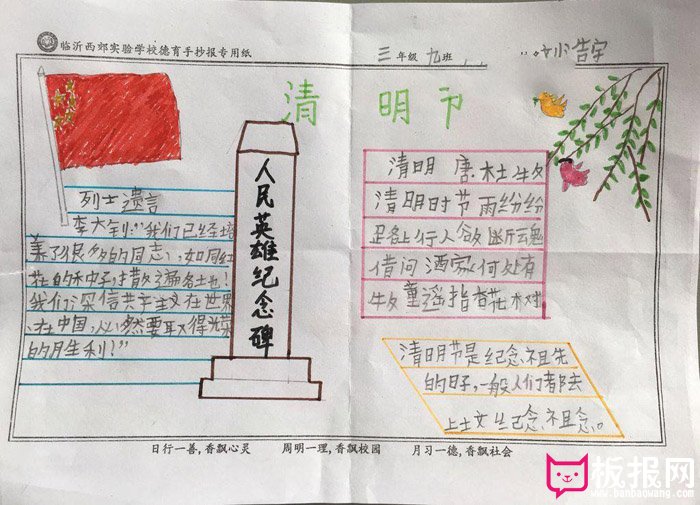 临沂西郊实验学校德育手抄报专用纸
三年级九班
清明节
人民英雄纪念碑
烈士遗言
李大钊:“我们已经培
养了很多的同志,如同红
花的种子,撒遍各土也!
我们深信共产主义在世界
、在中国,必然要取得光荣
的胜利!”
清明 唐.杜牧
清明时节雨纷纷
路上行人欲断魂
借问酒家何处有
牧童遥指杏花村
清明节是纪念祖先
的日子,一般人们都去
上坟纪念祖
日行一善,香飘心灵 周明一理,香飘校园 月习一德,香飘社会
板报网
www.banbaowang.com